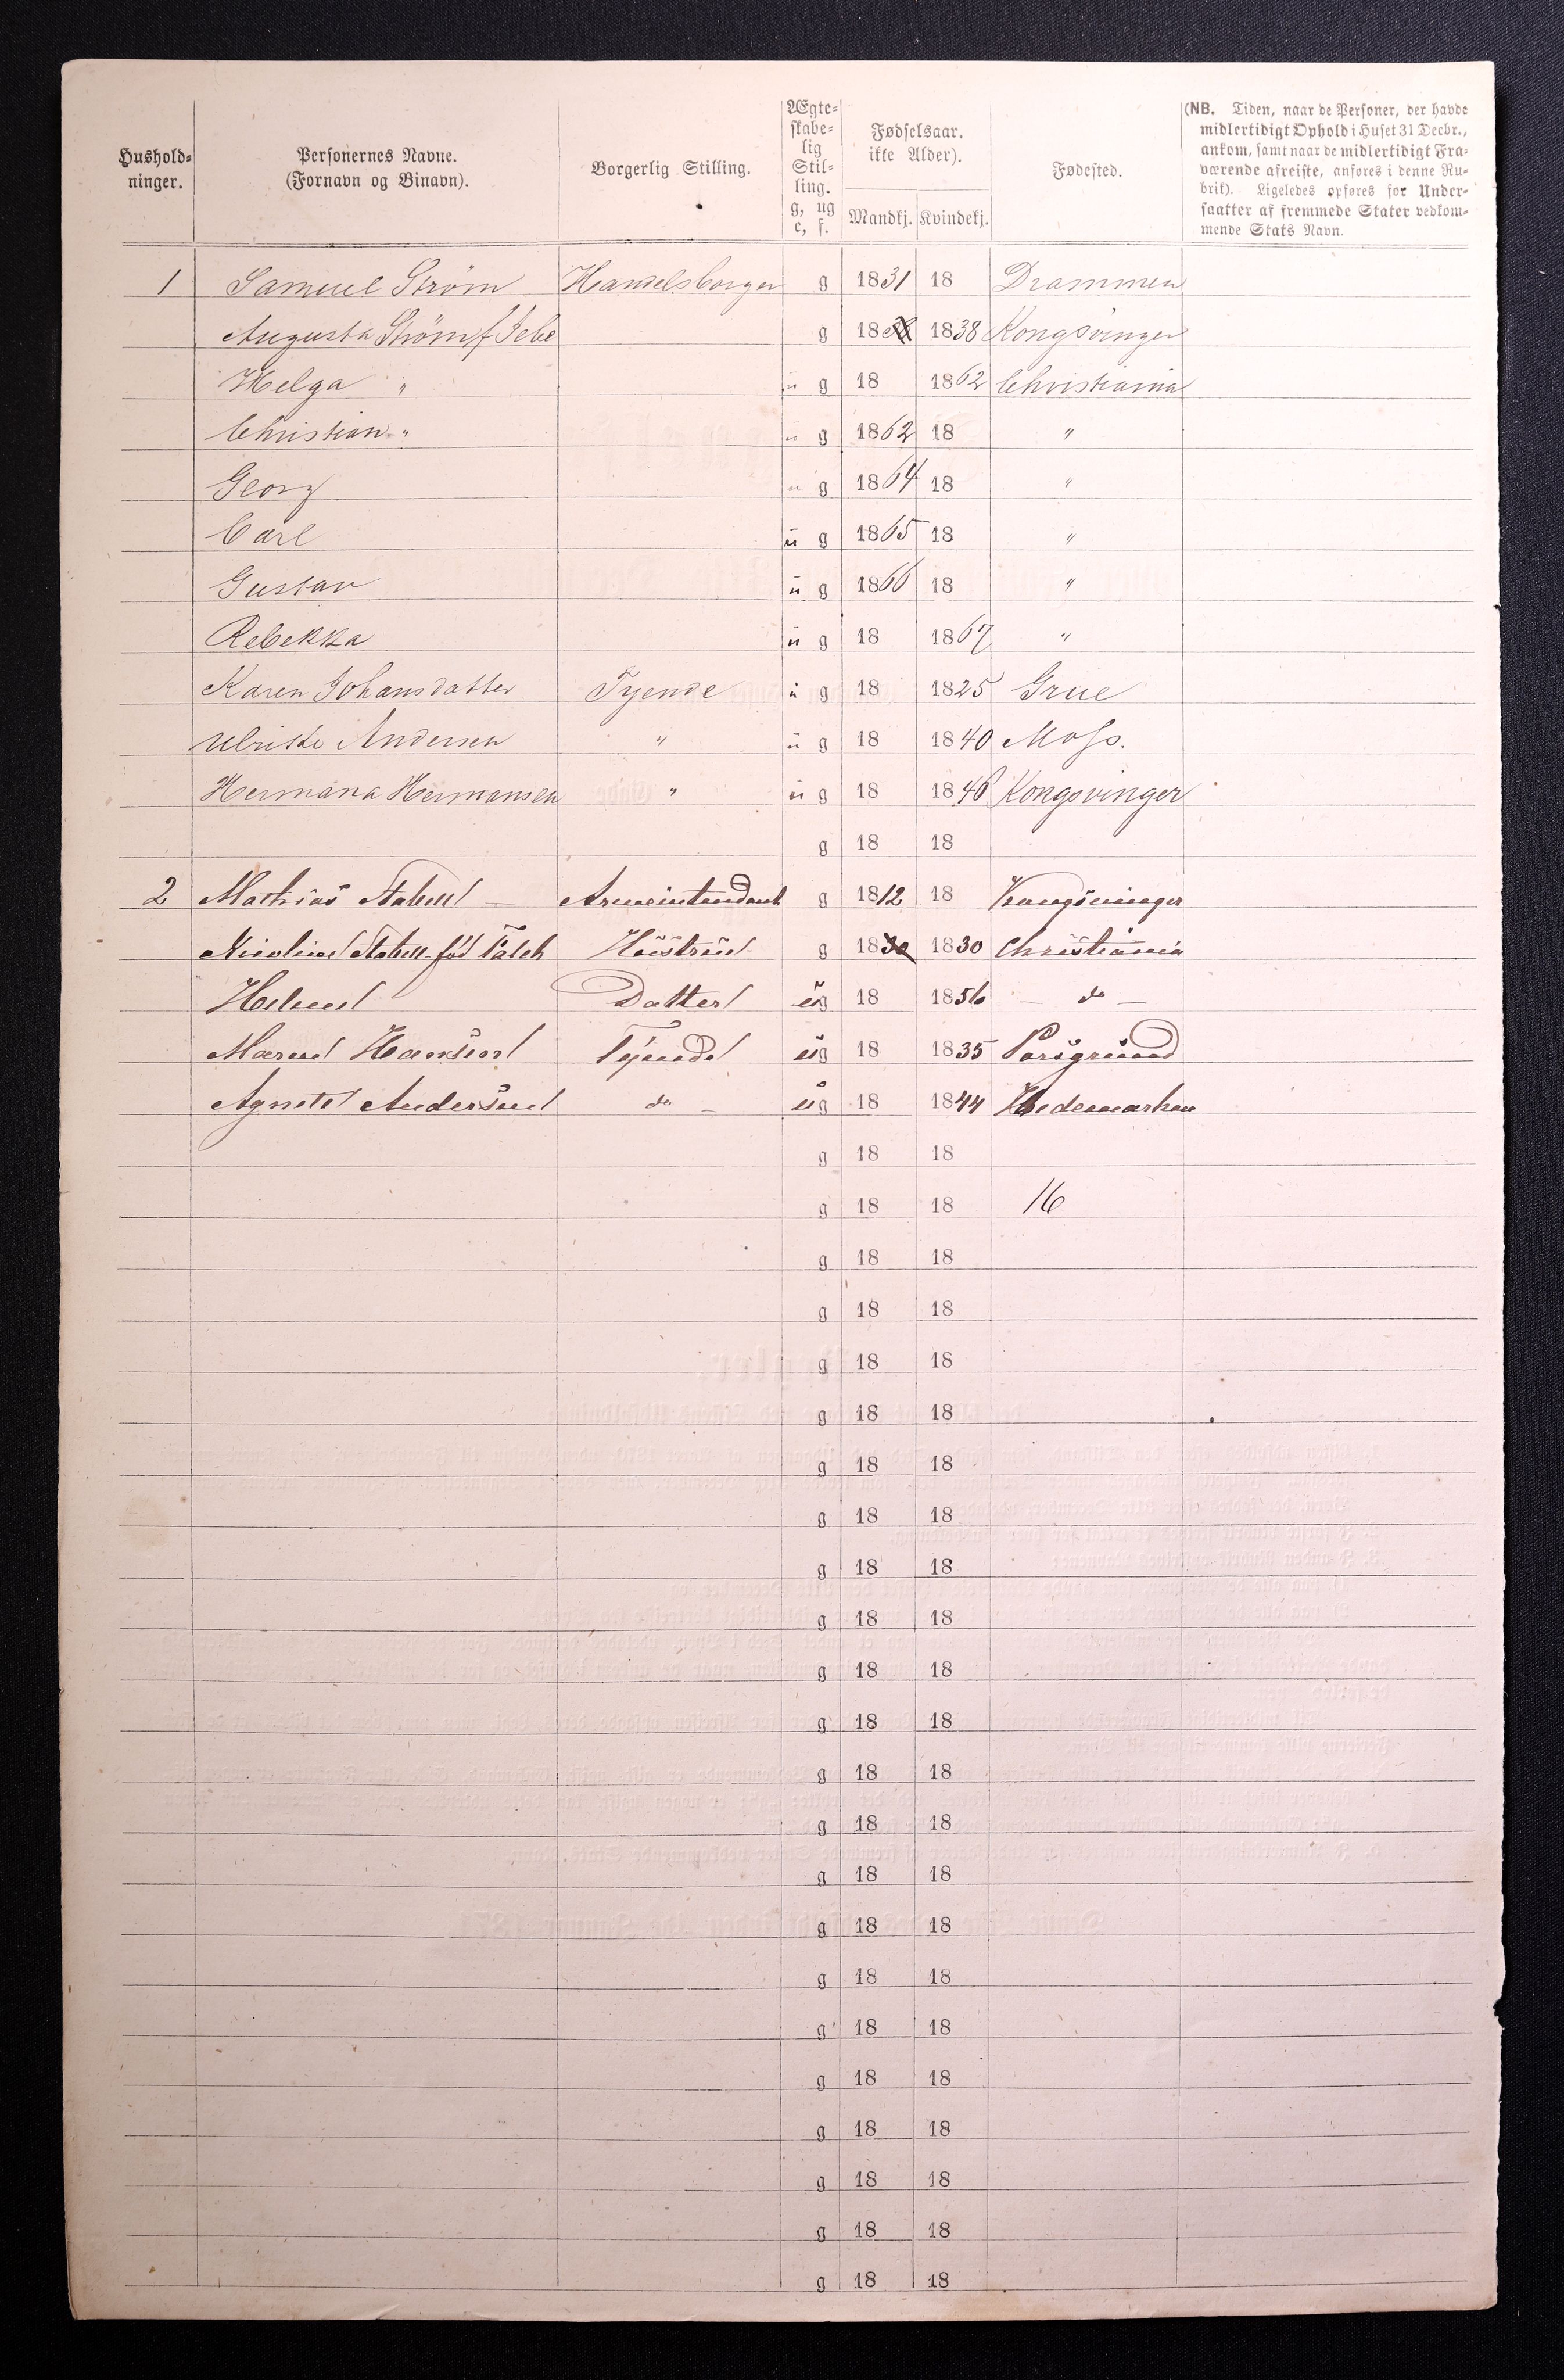 Hushold-
ninger.
Personernes Navne.
(Fornavn og Binavn).
Borgerlig Stilling.
Ægte-
skabe-
lig
Stil-
ling.
g, ug
e, f.
Fødselsaar.
ikke Alder).
Mandkj. Kvindekj.
Fødested.
(NB. Tiden, naar de Personer, der havde
midlertidigt Ophold i Huset 31 Decbr.,
ankom, samt naar de midlertidigt Fra-
værende afreiste, anføres i denne Ru-
brik). Ligeledes opføres for Under-
saatter af fremmede Stater vedkom-
mende Stats Navn.
1 Samuel Strøm Handelsborger g 1831 18 Drammen
Augusta Strøm f Jebe g 18 1838 Kongsvinger
Helga " u g 18 1862 Christiania
Christian " u g 1862 18 "
Georg u g 1864 18 "
Carl u g 1865 18 "
Gustav u g 1866 18 "
Rebekka u g 18 1867 "
Karen Johansdatter Tyende u g 18 1825 Grue
Ulrikke Andersen " u g 18 1840 Moss.
Hermana Hermansen " u g 18 1846 Kongsvinger
g 18 18
2 Mathias Stabell Armeintendant g 1812 18 Kongsvinger
Nicoline Stabell fød Falch Hustru g 1830 1830 Christiania
Helene Datter ug 18 1856 - do -
Maren Hansen Tyende ug 18 1835 Porsgrund
Agnete Andersen do - ug 18 1844 Hedemarken
g 18 18
g 18 18 16
g 18 18
g 18 18
g 18 18
g 18 18
g 18 18
g 18 18
g 18 18
g 18 18
g 18 18
g 18 18
g 18 18
g 18 18
g 18 18
g 18 18
g 18 18
g 18 18
g 18 18
g 18 18
g 18 18
g 18 18
g 18 18